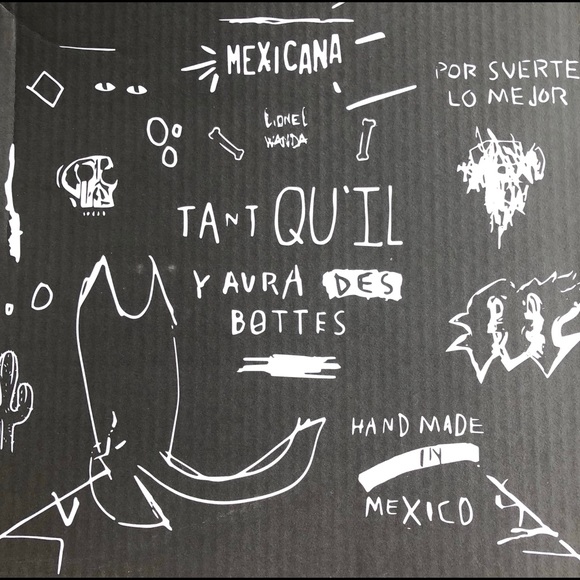 MEXICANA
POR SUERTE
LO MEJOR
LIONEL
WANDA
TANT QU'IL
Y AURA DES
BOTTES
HAND MADE
IN
MEXICO